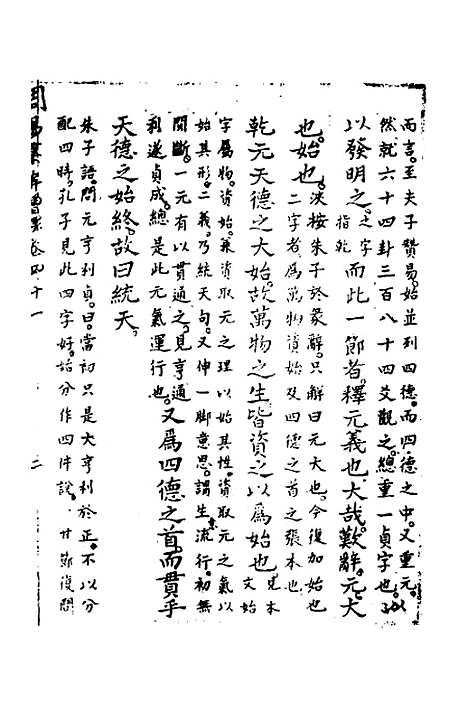 而言。至夫子贊易。始並列四德。而四德之中。又重元。
然就六十四卦三百八十四爻觀之。總重一貞字也。
以發明之。之字指乾而此一節者。釋元義也。大哉。歎辭。元。大
也。始也。淡按朱子於彖辭。只解曰元大也。今復加始也
二字者。為萬物資始及四德之首之張本也
乾元。天德之大始。故萬物之生。皆資之以為始也。見本文始
字屬物。資始。兼資取元之理以始其性。資取元之氣以
始其形。二義。乃統天句。又伸一脚意思。謂生氣流行。初無
間斷。一元有以貫通之。見亨通
利遂貞成。總是此元氣運行也。又為四德之首。而貫乎
天德之始終。故曰統天。
朱子語。問元亨利貞。曰。當初只是大亨利於正。不以分
配四時。孔子見此四字好。始分作四件說。
卷四十一
二